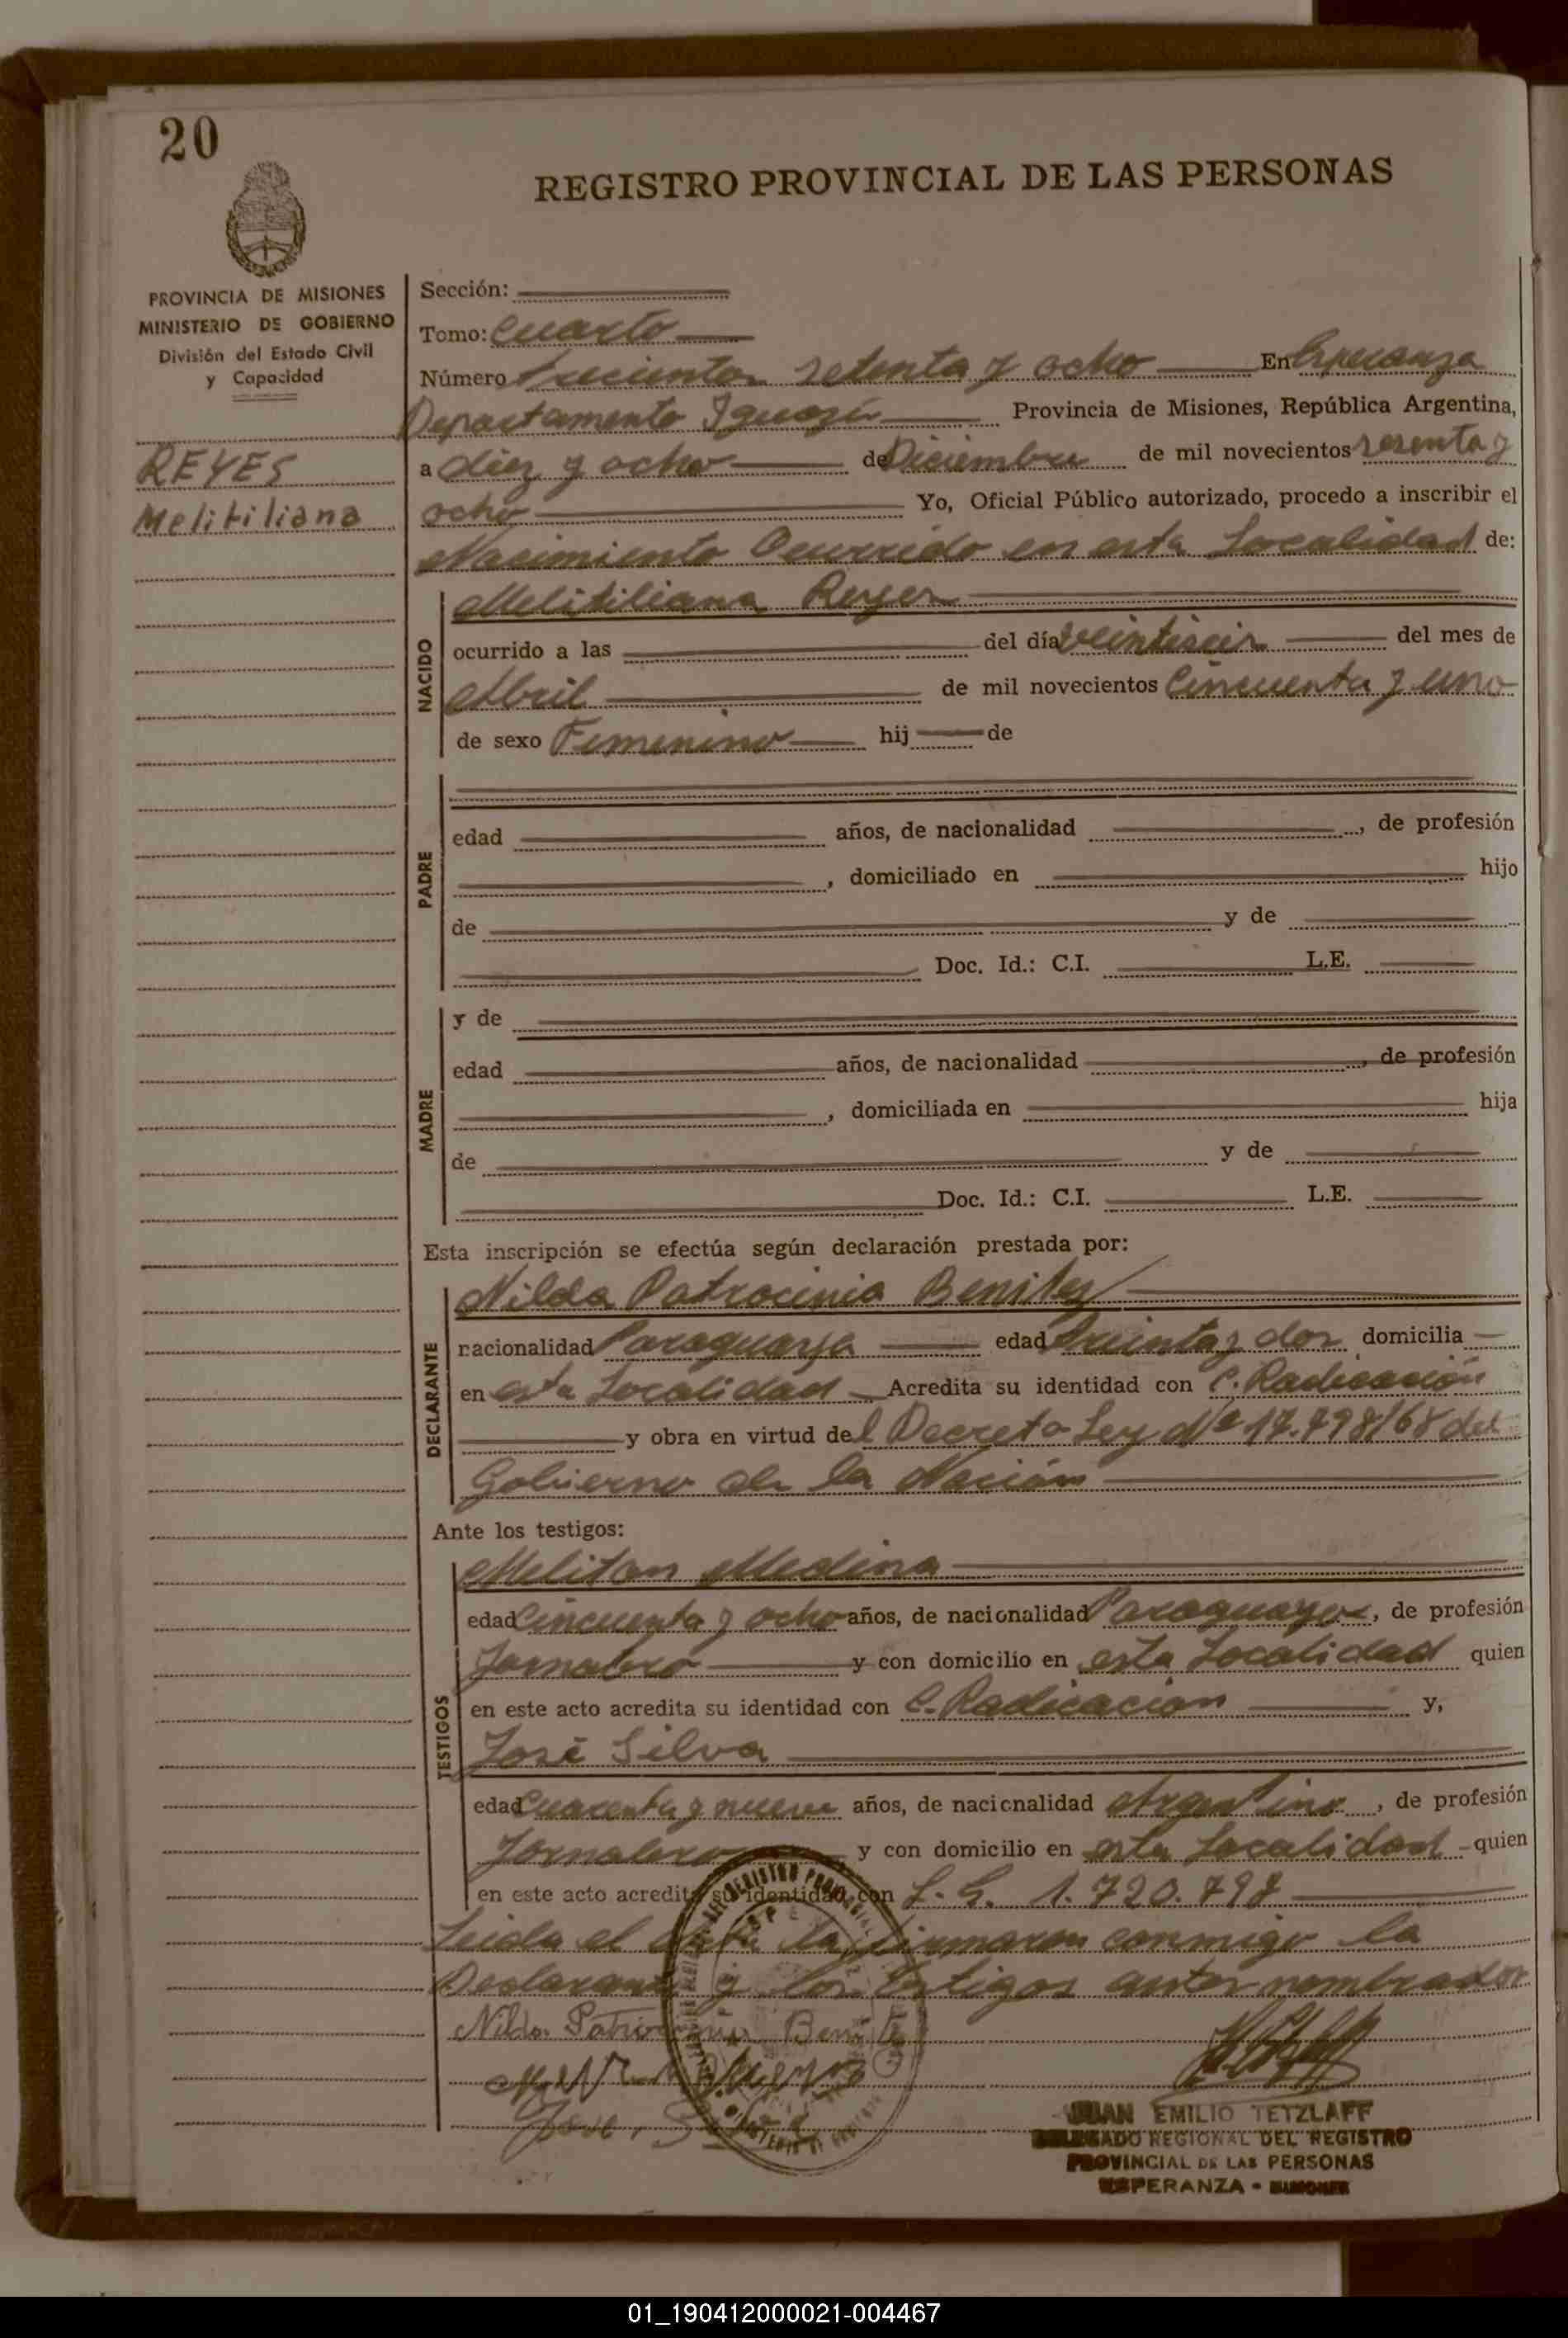 20
REGISTRO PROVINCIAL DE LAS PERSONAS
PROVINCIA DE MISIONES
MINISTERIO DE GOBIERNO
División del Estado Civil
y Capacidad
REYES
Melitiliana
Sección:
Tomo: Cuarto
Número trecientos setenta y ocho En Esperanza
Departamento Iguazú Provincia de Misiones, República Argentina,
a diez y ocho de Diciembre de mil novecientos sesenta y
ocho Yo, Oficial Público autorizado, procedo a inscribir el
Nacimiento Ocurrido en esta Localidad de:
NACIDO
Melitiliana Reyes
ocurrido a las del día veintiseis del mes de
Abril de mil novecientos Cincuenta y uno
de sexo Femenino hij de
PADRE
edad años, de nacionalidad , de profesión
, domiciliado en hijo
de y de
Doc. Id.: C.I. L.E.
MADRE
y de
edad años, de nacionalidad , de profesión
, domiciliada en hija
de y de
Doc. Id.: C.I. L.E.
Esta inscripción se efectúa según declaración prestada por:
DECLARANTE
Nilda Patrocinia Benitez
nacionalidad Paraguaya edad treinta y dos domicilia
en esta Localidad Acredita su identidad con C. Radicación
y obra en virtud del Decreto Ley Nº 17.498/68 del
Gobierno de la Nación
Ante los testigos:
TESTIGOS
Meliton Medina
edad Cincuenta y ocho años, de nacionalidad Paraguayo, de profesión
Jornalero y con domicilio en esta Localidad quien
en este acto acredita su identidad con C. Radicación y,
José Silva
edad Cuarenta y nueve años, de nacionalidad Argentino, de profesión
Jornalero y con domicilio en esta Localidad quien
en este acto acredita su identidad con 1.720.797
Leida el Acta la firmaron conmigo la
Declarante y los testigos antes nombrados
Nilda Patrocinia Benitez
Jose Silva
JUAN EMILIO TETZLAFF
DELEGADO REGIONAL DEL REGISTRO
PROVINCIAL DE LAS PERSONAS
ESPERANZA - MISIONES
01_190412000021-004467